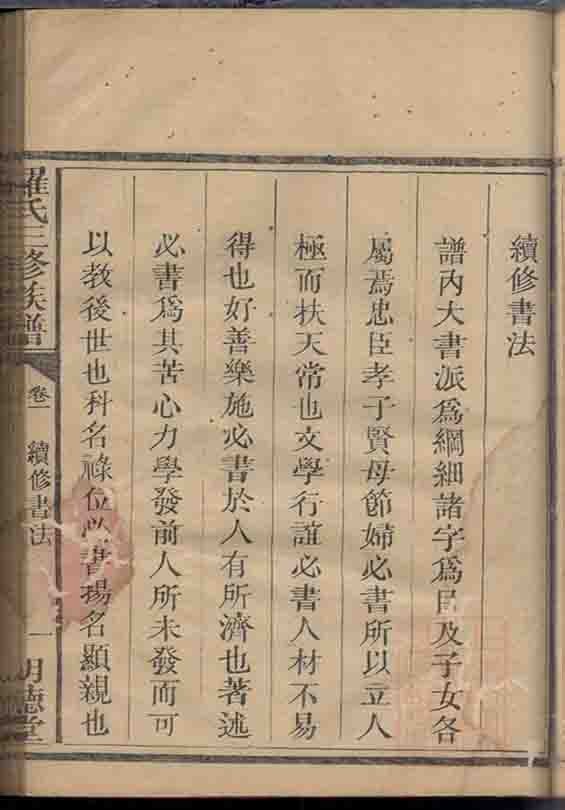 續修書法
譜內大書派爲綱細諸字爲目及子女各
屬焉忠臣孝子賢母節婦必書所以立人
極而扶天常也文學行誼必書人材不易
得也好善樂施必書於人有所濟也著述
必書爲其苦心力學發前人所未發而可
以教後世也科名祿位必書揚名顯親也
羅氏三修族譜
卷一
續修書法
一
明德堂